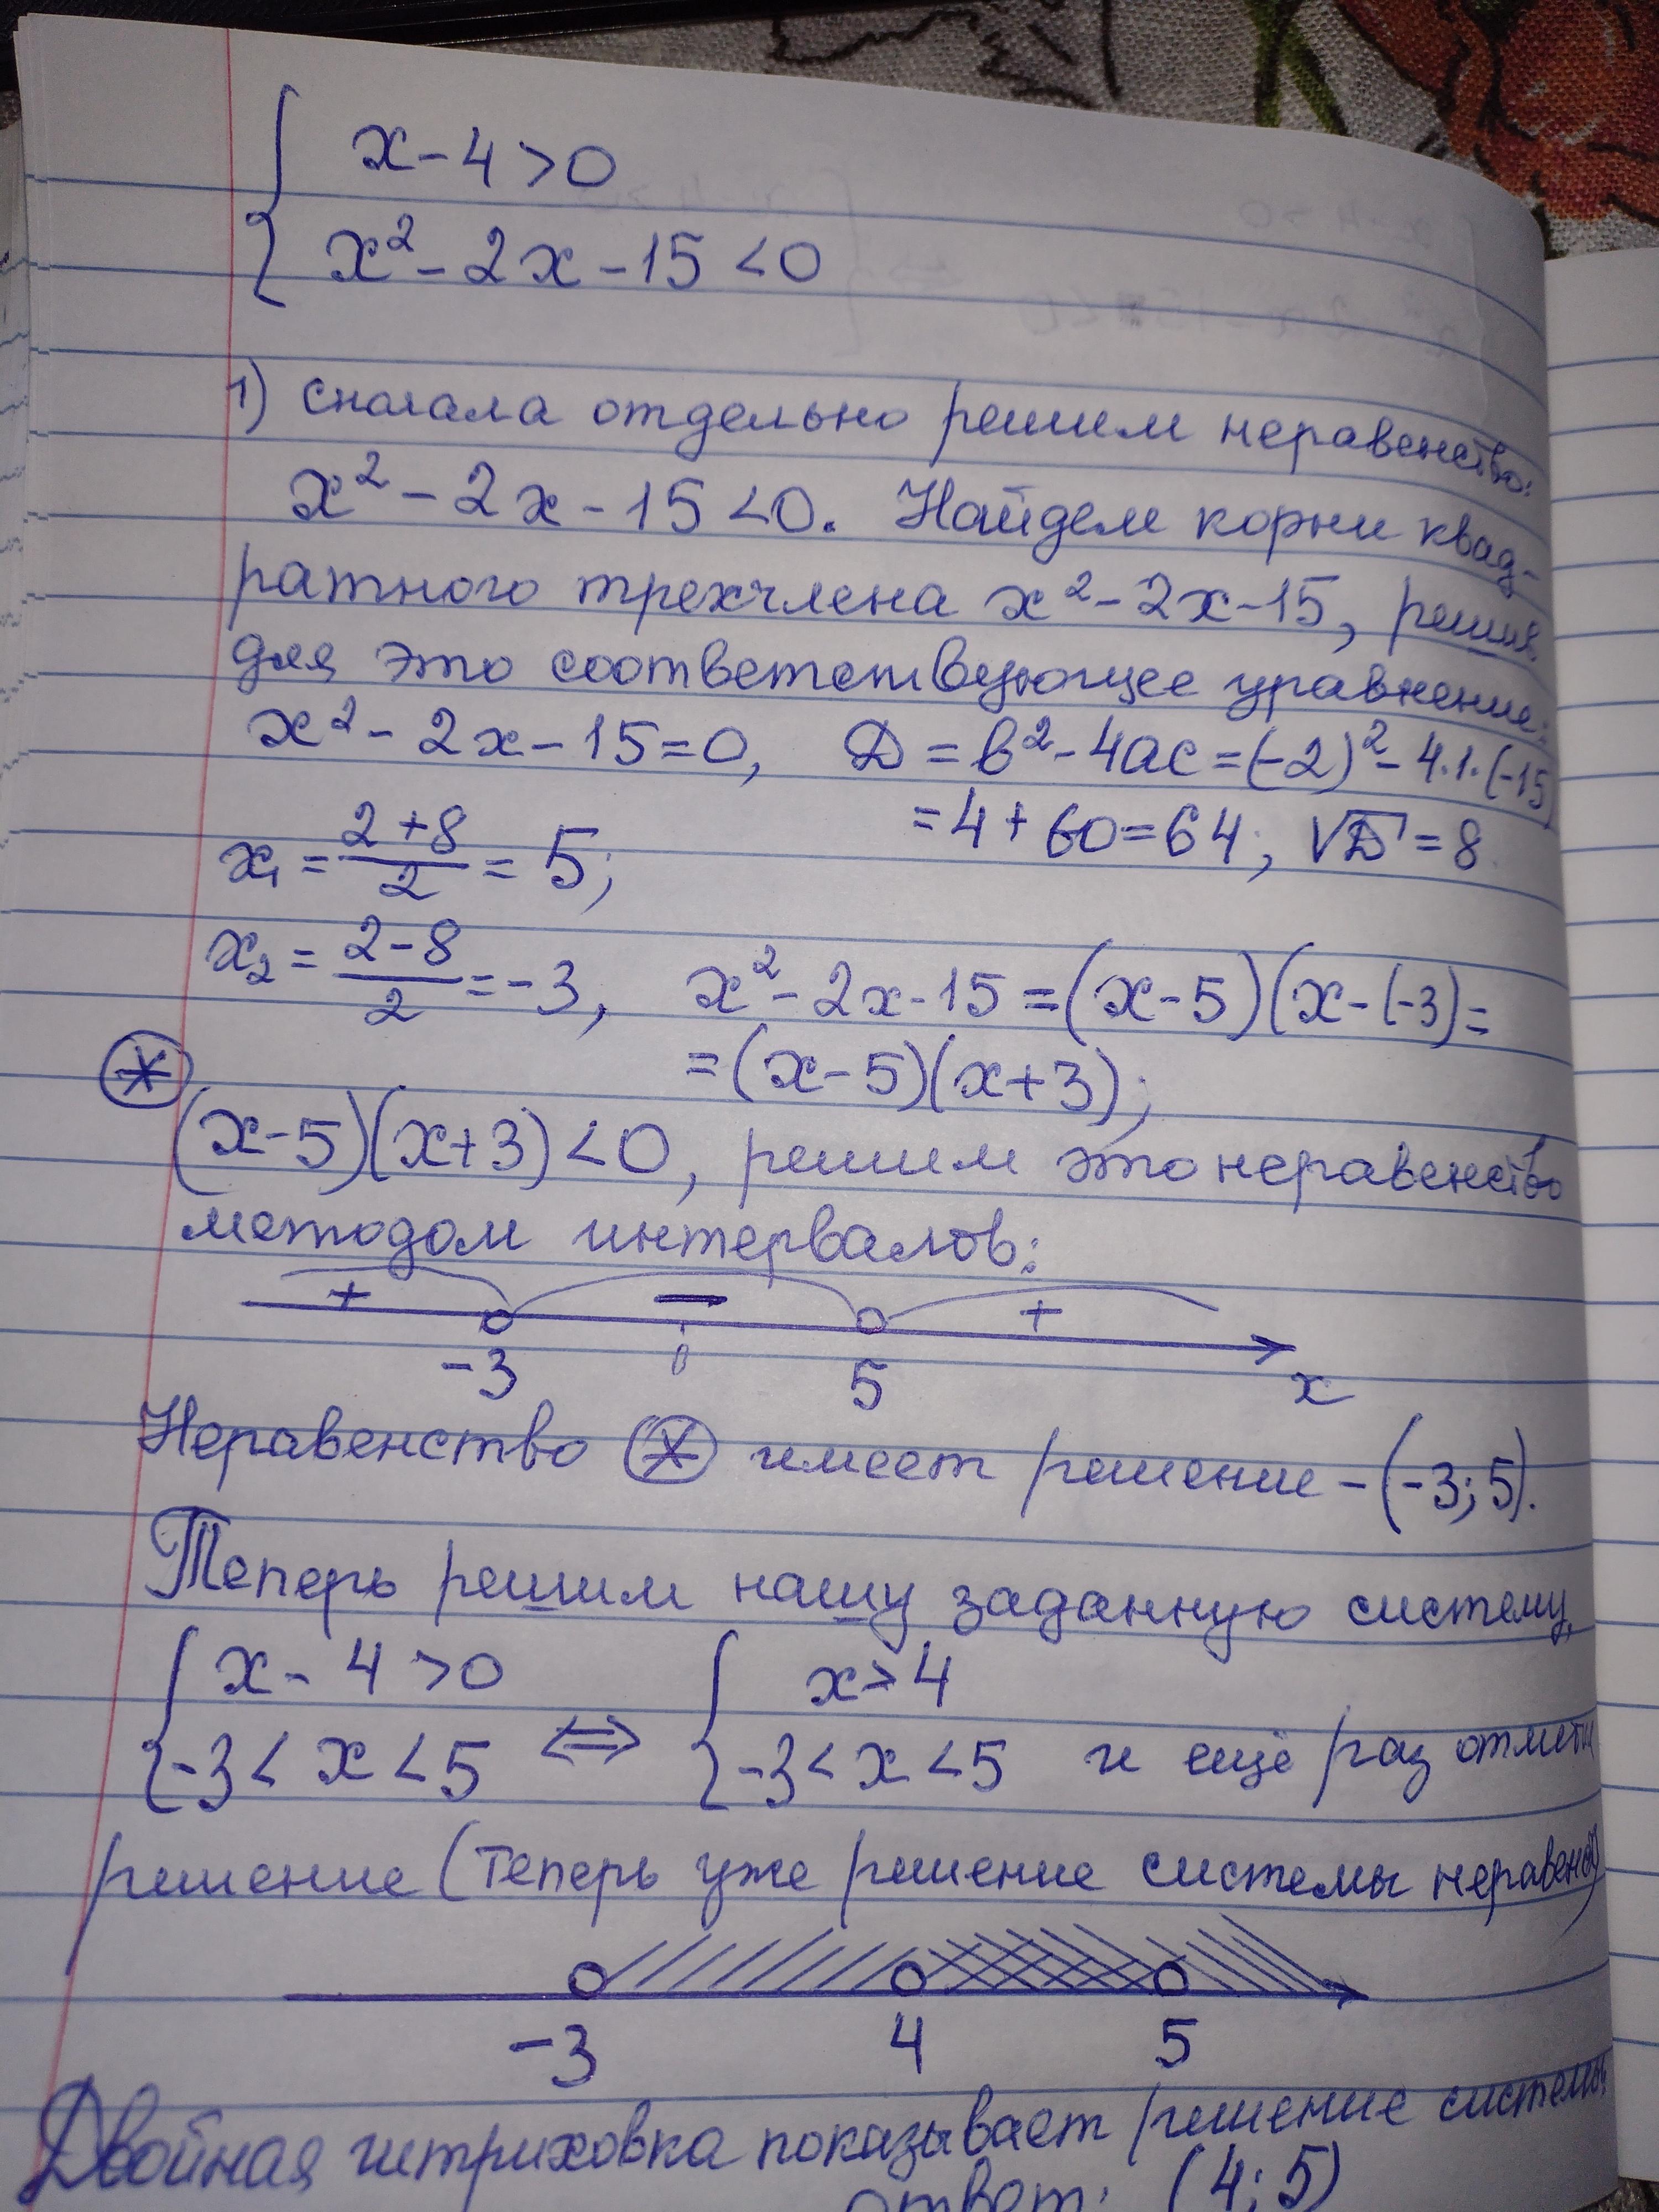 x - 4 > 0
x² - 2x - 15 < 0
1) сначала отдельно решим неравенство:
x² - 2x - 15 < 0. Найдем корни квад-
ратного трехчлена x² - 2x - 15, решив
для это соответствующее уравнение:
x² - 2x - 15 = 0, D = b² - 4ac = (-2)² - 4·1·(-15)
= 4 + 60 = 64; √D = 8
x₁ = (2+8)/2 = 5;
x₂ = (2-8)/2 = -3, x² - 2x - 15 = (x-5)(x-(-3) =
= (x-5)(x+3);
(*)
(x-5)(x+3) < 0, решим это неравенство
методом интервалов:
+ - +
-3 0 5 x
Неравенство (*) имеет решение - (-3; 5).
Теперь решим нашу заданную систему,
x - 4 > 0 x > 4
-3 < x < 5 ⇔ -3 < x < 5 и ещё раз отметим
решение (теперь уже решение системы неравенств)
-3 4 5
Двойная штриховка показывает решение системы
ответ: (4; 5)